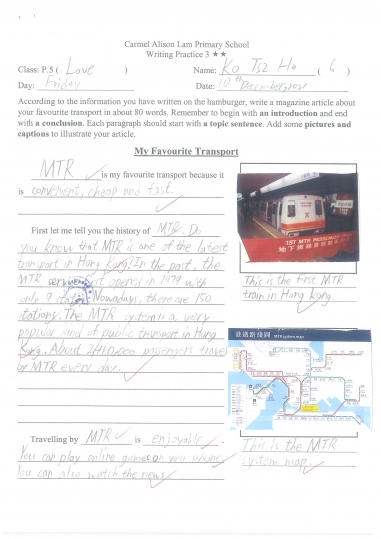 Carmel Alison Lam Primary School
Writing Practice 3 ★★
Class: P.5 ( Love ) Name: Ko Tsz Ho ( 6 )
Day: Friday Date: 10th December
According to the information you have written on the hamburger, write a magazine article about
your favourite transport in about 80 words. Remember to begin with an introduction and end
with a conclusion. Each paragraph should start with a topic sentence. Add some pictures and
captions to illustrate your article.
My Favourite Transport
MTR is my favourite transport because it
is convenient, cheap and fast.
First let me tell you the history of MTR. Do
you know that MTR is one of the latest
transport in Hong Kong? In the past, the
MTR opened in 1979 with
only 9 Nowadays, there are 150
stations. The MTR system is a very
popular kind of public transport in Hong
Kong. About passengers travel
by MTR every day.
Travelling by MTR is enjoyable.
You can play online games on you phone.
You can also watch the news.
1ST MTR PASSENGER
This is the first MTR
train in Hong Kong
港鐵路綫圖 MTR system map
This is the MTR
system map.